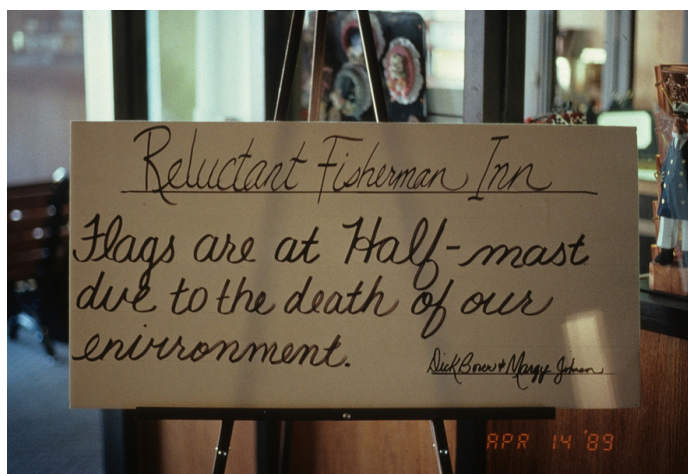 Reluctant Fisherman Inn
Flags are at Half-mast
due to the death of our
enirronment.
Dick Borer & Margy Johnson
APR 14 '89